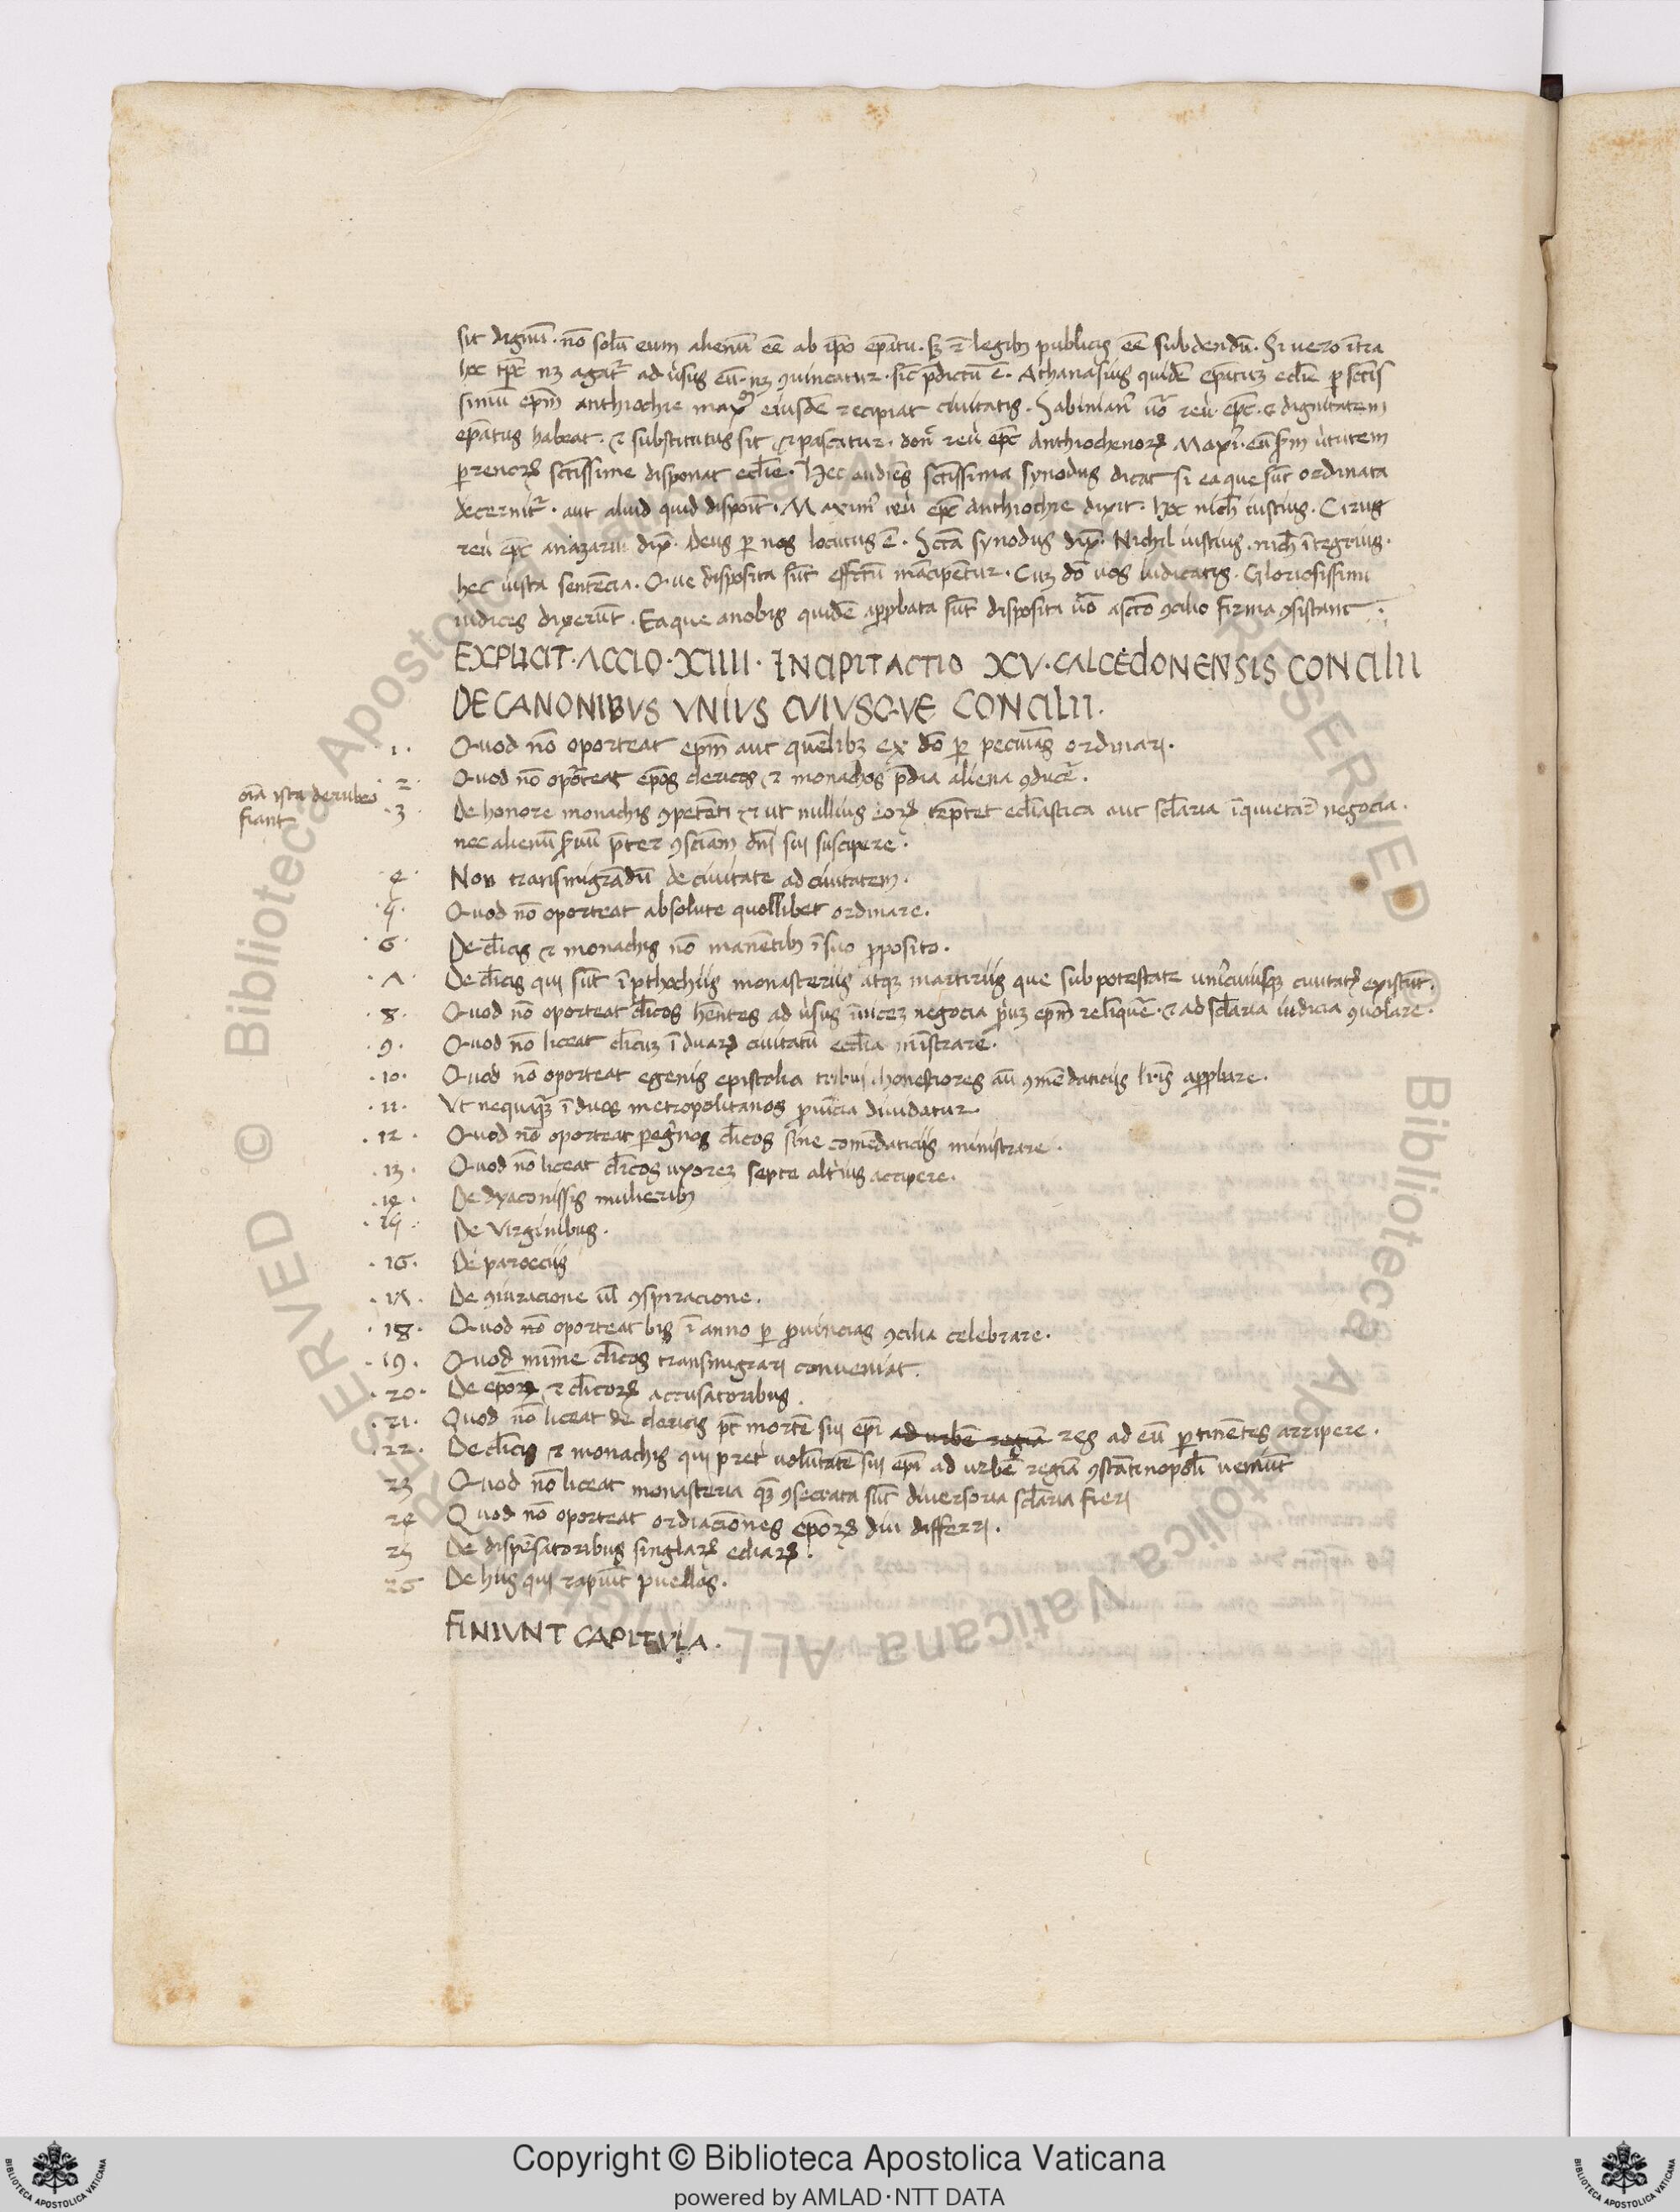 sit dignũ. nõ solũ eum alienũ eẽ ab ip̃o ep̃atu. sʒ ⁊ legibꝫ publicis eẽ subdendũ. Si vero ĩtra
hoc tp̃c nʒ agat᷑ ad ùsus eũ. nʒ ꝯuincatur. sic p̃dictũ ẽ. Athanasius quidẽ ep̃atuʒ eccl̃ie p sctĩs
simũ ep̃m anthiochie maxm̃ eiusdẽ recipiat ciuitatis. Sabinian᷑ ũo reù. ep̃c. ⁊ dignitatem
ep̃atus habeat. ⁊ substitutus sit ⁊ pascatur. donc̃ reù ep̃c Anthiochenoꝝ Maxi᷑. eũ scđm ùtutem
per tenorẽ sctĩssime disponat eccl̃ie. Hec audiẽs sctĩssima synodus dicat si ea que sũt ordinata
decernit᷑. aut aliud quid dispoĩt. Maxim᷑ reù ep̃c Anthiochie dixit. hoc nich̃ iustius. Cirus
reù ep̃c anazaru dix̃. Deus ꝑ nos locutus ẽ. Sctã synodus dix̃. Nichil iustius. nich̃ ĩtegrius.
hec iusta sentẽcia. Que disposita sũt effc̃tũ mãcipẽtur. Cuʒ dõ uos iudicatis. Gloriosissimi
iudices dixerũt. Ea que a nobis quidẽ aꝓbata sũt disposita ũo a sctõ ꝯcilio firma ꝯsistant.
EXPLICIT. ACCIO. XIIII. INCIPIT ACTIO XV. CALCEDONENSIS CONCILII
DE CANONIBVS VNIVS CVIVSQVE CONCILII.
.1. Quod nõ oporteat ep̃m aut quẽlibʒ ex dõ ꝑ pecuniãs ordinari.
.2. Quod nõ oporteat ep̃os clericos ⁊ monachos p̃dia aliena ꝯducẽ.
oĩa ista de rubeo
fiant
.3. De honore monachis ꝯpetẽti ⁊ ut nullius eoꝝ tẽptet eccl̃iastica aut sc̃laria ĩquietare negocia.
nec alienũ s̃uũ p̃ter ꝯsciam dñi sui suscipere.
.4. Non transmigrãdũ de ciuitate ad ciuitatem.
.5. Quod nõ oporteat absolute quoslibet ordinare.
.6. De cl̃icis ⁊ monachis nõ manẽtibꝫ ĩ suo ꝓposito.
.7. De cl̃icis qui sũt ĩ pthochiis monasteriis atqʒ martiriis que sub potestate uni᷑cuiusqʒ ciuitatis existũt.
.8. Quod nõ oporteat cl̃icos hñtes ad ùsus ĩuiceʒ negocia ꝓp̃uʒ ep̃m relĩquẽ. ⁊ ad sc̃laria iudicia ꝯuolare.
.9. Quod nõ liceat cl̃icuʒ ĩ duaꝝ ciuitatũ eccl̃ia mĩstrare.
.10. Quod nõ oporteat egenis epistolia tribui. honestiores aũ ꝯmẽdaticiis lr̃is aꝓbare.
.11. Vt nequaqʒ ĩ duos metropolitanos ꝓuĩcia diuidatur.
.12. Quod nõ oporteat ꝑegrinos cl̃icos sine comẽdaticiis ministrare.
.13. Quod nõ liceat cl̃icos uxoreʒ septe alt᷑ius accipere.
.14. De dyaconissis mulieribꝫ
.15. De virginibus.
.16. De paroeciis
.17. De ꝯiuracione ul̃ ꝯspiracione.
.18. Quod nõ oporteat bis ĩ anno ꝑ ꝓuincias ꝯcilia celebrare.
.19. Quod minĩe cl̃icos transmigrari conueniat.
.20. De ep̃oꝝ ⁊ cl̃icoꝝ accusatoribus.
.21. Quod nõ liceat de clericis pt̃ mortẽ sui ep̃i ad urbẽ regiã res ad eũ ꝑtinẽtes arripere.
.22. De cl̃icis ⁊ monachis qui p̃ret᷑ uolũtatẽ sui ep̃i ad urbẽ regiã ꝯstãtinopolĩ ueniũt
23 Quod nõ liceat monasteria q̃ ꝯsecrata sũt diuersoria sc̃laria fieri
24 Quod nõ oporteat ordiaciones ep̃oꝝ diu differri.
25 De dispẽsatoribus singlaꝝ eccl̃iaꝝ.
26 De hiis qui rapiũt puellas.
FINIVNT CAPITVLA.
© Biblioteca Apostolica Vaticana ALL RIGHTS RESERVED
Copyright © Biblioteca Apostolica Vaticana
powered by AMLAD·NTT DATA
BIBLIOTECA APOSTOLICA VATICANA
BIBLIOTECA APOSTOLICA VATICANA